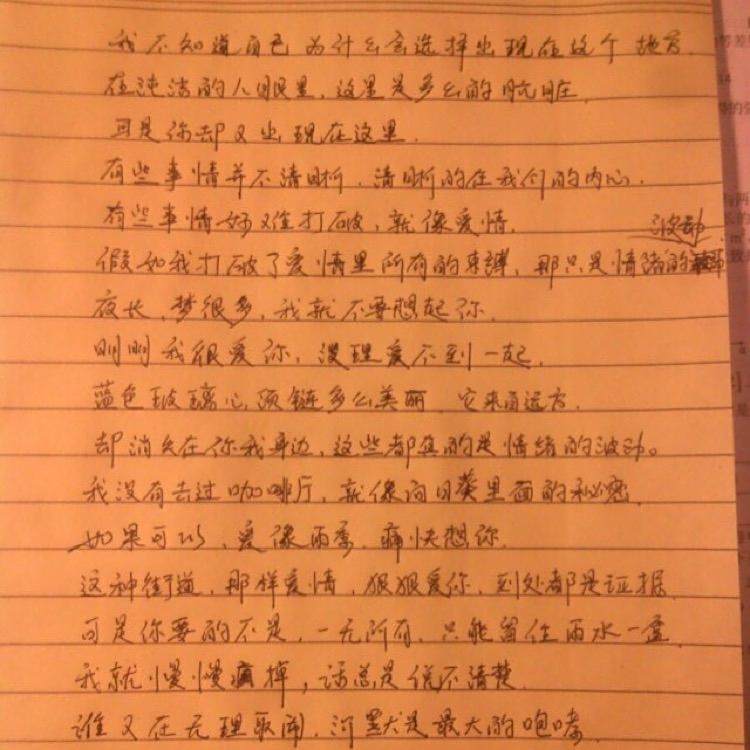 我不知道自己为什么会选择出现在这个地方.
在纯洁的人眼里,这里是多么的肮脏.
可是你却又出现在这里.
有些事情并不清晰,清晰的在我们的内心.
有些事情好难打破,就像爱情.
波动
假如我打破了爱情里所有的束缚,那只是情绪的
夜长,梦很多,我就不要想起你.
明明我很爱你,没理爱不到一起.
蓝色玻璃心,项链多么美丽,它来自远方.
却消失在你我身边,这些都真的是情绪的波动。
我没有去过咖啡厅,就像向日葵里面的秘密.
如果可以,爱像雨季,痛快想你.
这种街道,那样爱情,狠狠爱你,到处都是证据.
可是你要的不是,一无所有,只能留住雨水一盒.
我就慢慢疯掉,话总是说不清楚.
谁又在无理取闹,沉默是最大的咆哮.